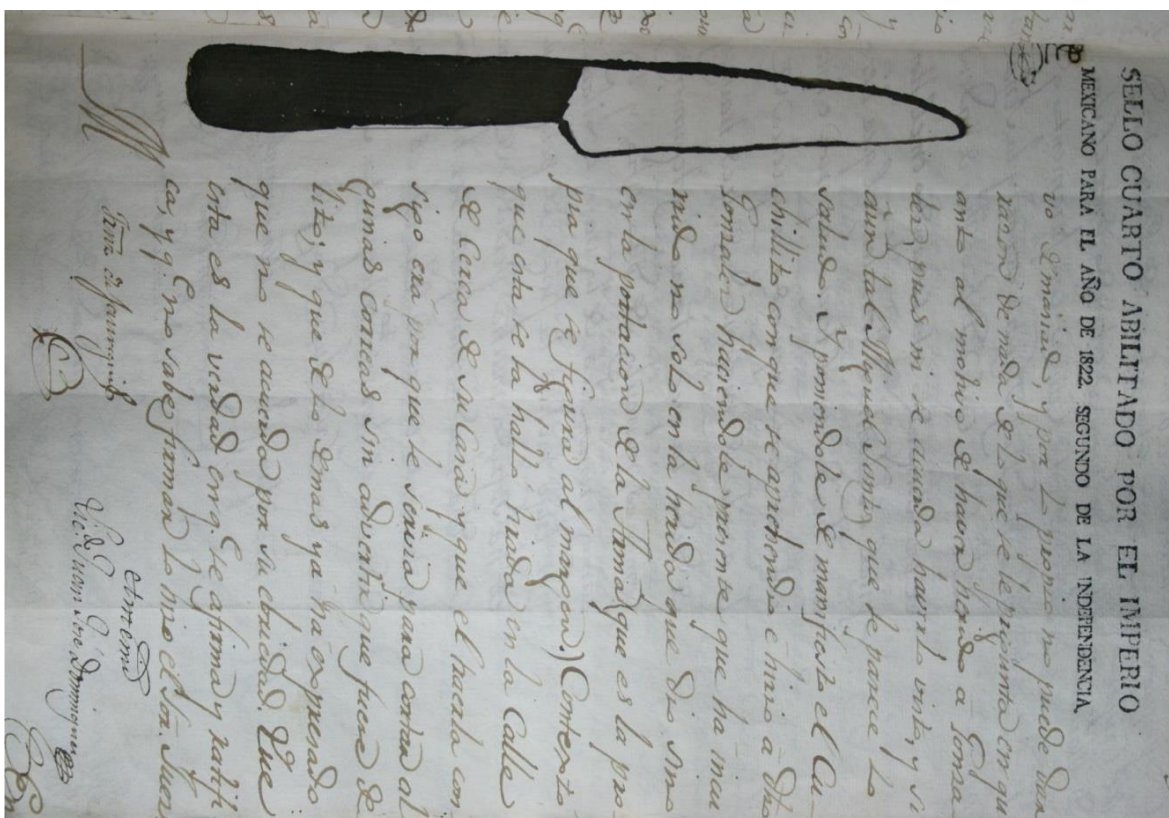 SELLO CUARTO ABILITADO POR EL IMPERIO
MEXICANO PARA EL AÑO DE 1822. SEGUNDO DE LA INDEPENDENCIA.
vo y por lo propio no puede dar
razon de nada de lo que se le pregunta en qu
anto al motivo de haver herido a Gonza
les, pues ni se acuerda haverlo visto, y si
â un tal Miguel que le parece lo
saludo. Y poniendole de manifiesto el Cu-
chillito con que se aprehendio é hirio a Dho
Gonzales haciendole presente que ha incu
rrido no solo en la herida que dio, sino
en la portacion de la Arma (que es la pro-
pia que se figura al margen.) Contesto
que esta se la halló tirada en la Calle
de cerca de su Casa y que el traerla con
sigo era por que le servia para cortar al
gunas correas sin advertir que fuese de
lito; y que de lo demas ya ha expresado
que no se acuerda por su ebriedad. Que
esta es la verdad en q.e se afirma y ratifi
ca, y q.e no sabe firmar lo hizo el Sor. Juez
Ante mi
Juan José Dominguez